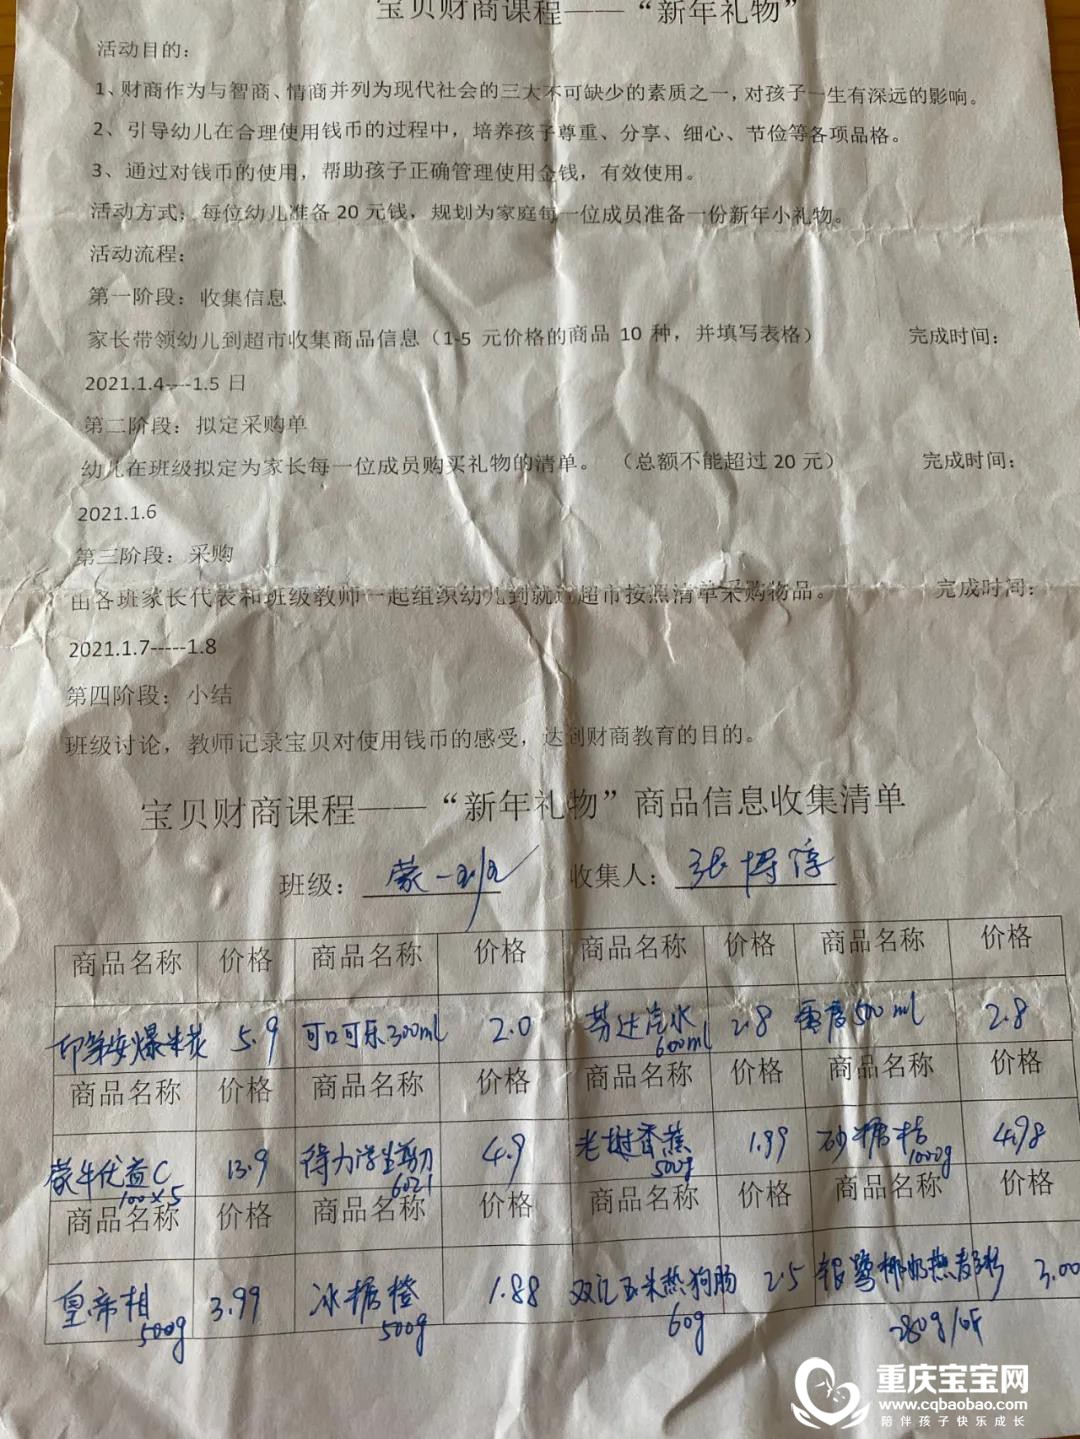 宝贝财商课程——“新年礼物”
活动目的：
1、财商作为与智商、情商并列为现代社会的三大不可缺少的素质之一，对孩子一生有深远的影响。
2、引导幼儿在合理使用钱币的过程中，培养孩子尊重、分享、细心、节俭等各项品格。
3、通过对钱币的使用，帮助孩子正确管理使用金钱，有效使用。
活动方式：每位幼儿准备20元钱，规划为家庭每一位成员准备一份新年小礼物。
活动流程：
第一阶段：收集信息
家长带领幼儿到超市收集商品信息（1-5 元价格的商品 10 种，并填写表格） 完成时间：
2021.1.4----1.5日
第二阶段：拟定采购单
幼儿在班级拟定为家长每一位成员购买礼物的清单。（总额不能超过20元） 完成时间：
2021.1.6
第三阶段：采购
由各班家长代表和班级教师一起组织幼儿到就近超市按照清单采购物品。 完成时间：
2021.1.7-----1.8
第四阶段：小结
班级讨论，教师记录宝贝对使用钱币的感受，达到财商教育的目的。
宝贝财商课程——“新年礼物”商品信息收集清单
班级：蒙一班 收集人：张博淳
商品名称 价格 商品名称 价格 商品名称 价格 商品名称 价格
爆米花 5.9 可口可乐300ml 2.0 芬达汽水600ml 2.8 雪碧500ml 2.8
商品名称 价格 商品名称 价格 商品名称 价格 商品名称 价格
蒙牛优益C 100×5 13.9 得力学生剪刀6021 4.9 老树香蕉500g 1.99 砂糖桔1000g 4.98
商品名称 价格 商品名称 价格 商品名称 价格 商品名称 价格
皇帝柑500g 3.99 冰糖橙500g 1.88 双汇玉米热狗肠60g 2.5 银鹭椰奶燕麦粥280g/听 3.00
重庆宝宝网
www.cqbaobao.com
陪伴孩子快乐成长